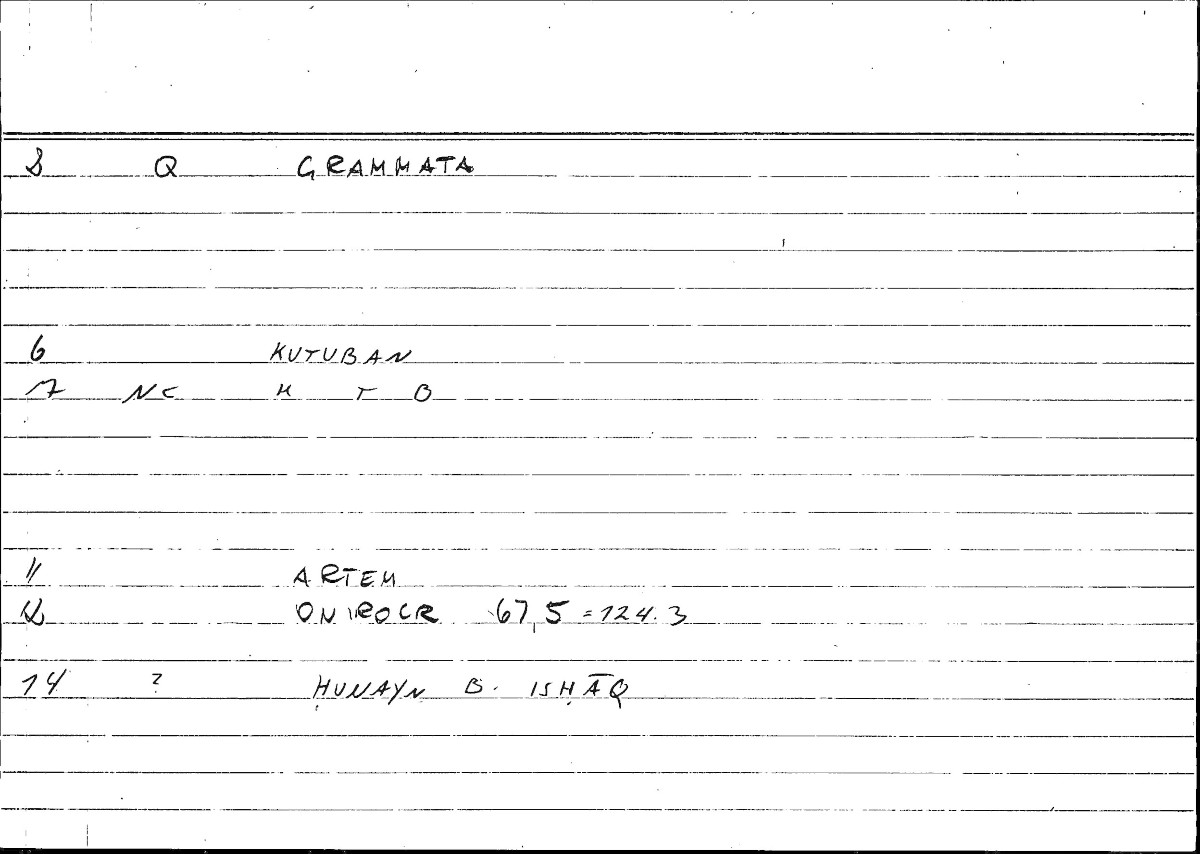 Q GRAMMATA
6 KUTUBAN
7 NC K T B
11 ARTEM
ONIROCR 67,5 = 124.3
14 ? ḤUNAYN B. ISḤĀQ